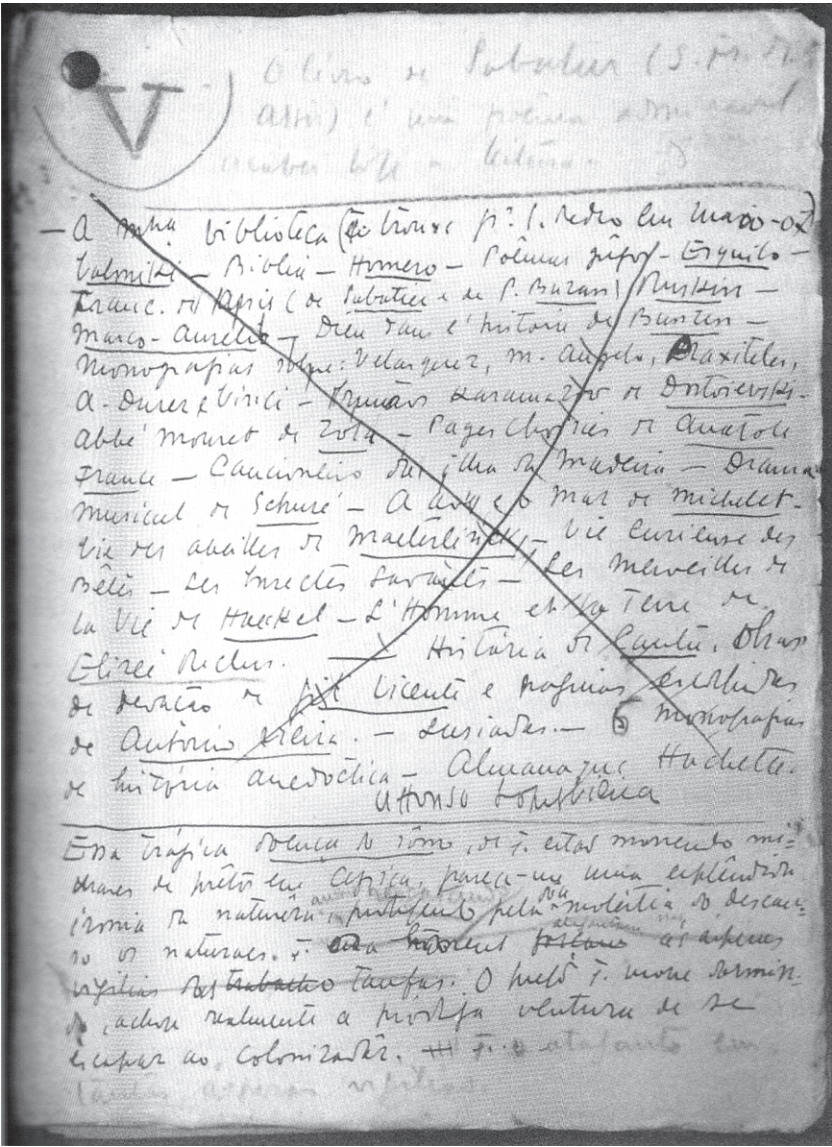 V
O livro de Sabatier (S. Fr. d'
Assis) é um poema admiravel.
a leitura.
— A minha biblioteca (q trouxe pª. S. Pedro em maio-07)
Biblia — Homero — Poêmas — Esquilo —
Franc. de Assis (de Sabatier e de P. ) Ruskin —
Marco-Aurelio — Dieu dans l'histoire de Bunsen —
Monografias sobre: Velasquez, M. Angelo, Praxiteles,
A. Durer e Vinci — Irmãos Karamazov de Dostoievski-
Abbé Mouret de Zola — Pages Choisies de Anatole
France — Cancioneiro da ilha da Madeira — Drama
musical de Schuré — A e o Mar de Michelet-
Vie des abeilles de Maeterlinck, — Vie Curieuse des
Bêtes — Les Insectes Savants — Les Merveilles de
la Vie de Haeckel — L'Homme et la Terre de
Elisée Reclus. — História de Cantu. Obras
de devação de Gil Vicente e paginas escolhidas
de Antonio Vieira. — Lusiadas. — 6 monografias
de história anedoctica — Almanaque Hachette.
Affonso Lopes Vieira
Essa trágica doença do sono, de q. estão morrendo mi-
lhares de prêtos em Africa, parece-me uma esplêndida
ironia da naturêza, protegendo pela sua molestia do descan-
so os naturaes. q. as asperas
vigilias das trabalho tarefas. O prêto q. morre dormin-
do, achou realmente a ventura de se
escapar ao colonizadôr. q. o em
tantas asperas vigilias.